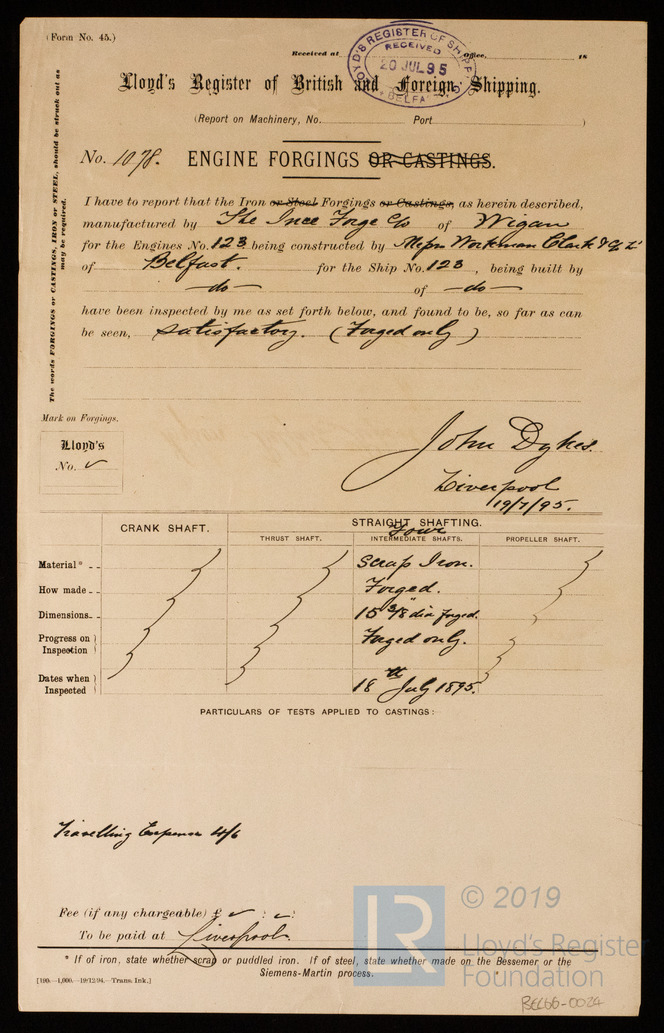 (Form No. 45.)
Received at Office, 18
LLOYD'S REGISTER OF SHIPPING
RECEIVED
20 JUL 95
BELFAST
Lloyd's Register of British and Foreign Shipping.
(Report on Machinery, No. Port )
The words FORGINGS or CASTINGS, IRON or STEEL, should be struck out as may be required.
No. 1078. ENGINE FORGINGS OR CASTINGS.
I have to report that the Iron or Steel Forgings or Castings, as herein described,
manufactured by The Ince Forge Co of Wigan
for the Engines No. 123 being constructed by Messrs Workman Clark & Co Ld
of Belfast. for the Ship No. 123, being built by
—do— of —do—
have been inspected by me as set forth below, and found to be, so far as can
be seen, satisfactory. (Forged only)
Mark on Forgings.
Lloyd's
No. ✓
John Dykes.
Liverpool
19/7/95.
CRANK SHAFT. STRAIGHT SHAFTING.
Four
THRUST SHAFT. INTERMEDIATE SHAFTS. PROPELLER SHAFT.
Material* Scrap Iron.
How made Forged.
Dimensions 15 3/8" dia forged.
Progress on Inspection Forged only.
Dates when Inspected 18th July 1895.
PARTICULARS OF TESTS APPLIED TO CASTINGS:
Travelling Expenses 4/6
Fee (if any chargeable) £ ✓ : ✓ :
To be paid at Liverpool.
* If of iron, state whether scrap or puddled iron. If of steel, state whether made on the Bessemer or the
Siemens-Martin process.
[190.—1,000.—19/12/94.—Trans. Ink.]
LR © 2019
Lloyd's Register
Foundation
BEL66-0024